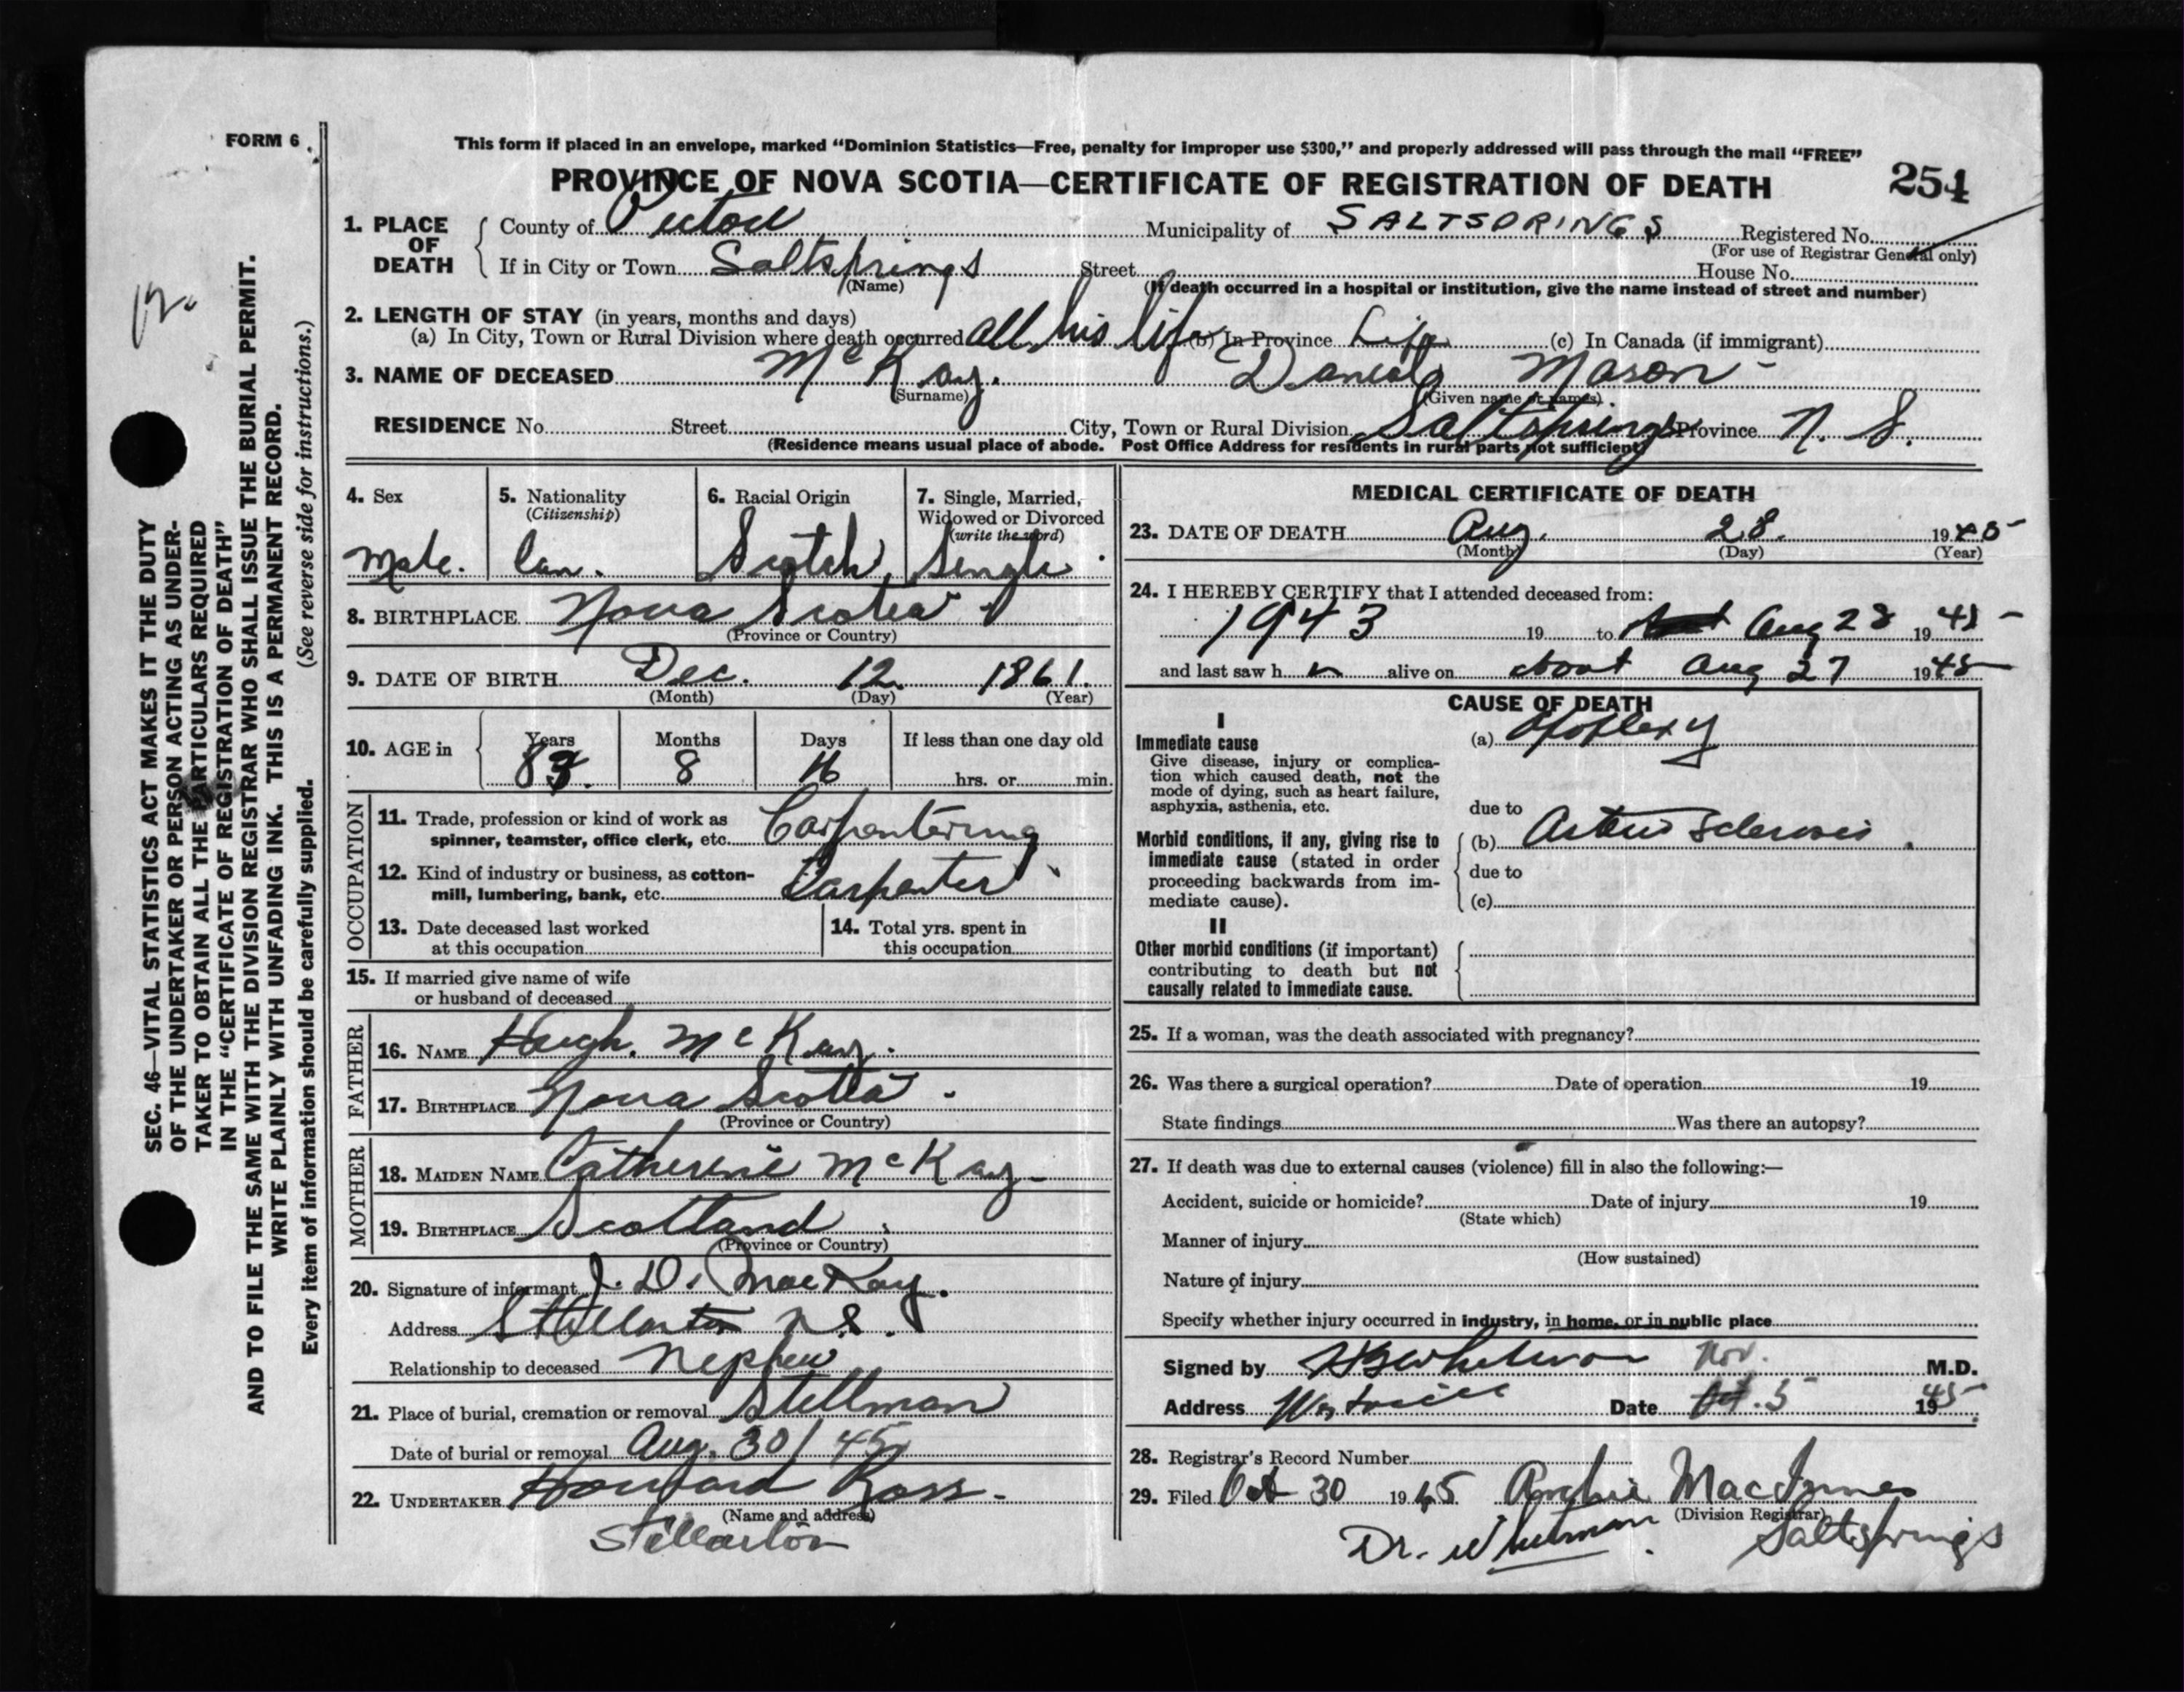 FORM 6
This form if placed in an envelope, marked "Dominion Statistics—Free, penalty for improper use $300," and properly addressed will pass through the mail "FREE"
PROVINCE OF NOVA SCOTIA—CERTIFICATE OF REGISTRATION OF DEATH 254
1. PLACE OF DEATH
County of Pictou Municipality of SALTSPRINGS Registered No.
(For use of Registrar General only)
If in City or Town Saltsprings Street House No.
(Name) (If death occurred in a hospital or institution, give the name instead of street and number)
2. LENGTH OF STAY (in years, months and days)
(a) In City, Town or Rural Division where death occurred All his life (b) In Province Life (c) In Canada (if immigrant)
3. NAME OF DECEASED McKay. Donald Mason
(Surname) (Given name or names)
RESIDENCE No. Street City, Town or Rural Division Saltsprings Province N. S.
(Residence means usual place of abode. Post Office Address for residents in rural parts not sufficient)
4. Sex
Male.
5. Nationality
(Citizenship)
Can.
6. Racial Origin
Scotch
7. Single, Married,
Widowed or Divorced
(write the word)
Single
8. BIRTHPLACE Nova Scotia
(Province or Country)
9. DATE OF BIRTH Dec. 12 1861.
(Month) (Day) (Year)
10. AGE in Years Months Days If less than one day old
83. 8 16 hrs. or min.
OCCUPATION
11. Trade, profession or kind of work as
spinner, teamster, office clerk, etc. Carpentering
12. Kind of industry or business, as cotton-
mill, lumbering, bank, etc. Carpenter
13. Date deceased last worked
at this occupation
14. Total yrs. spent in
this occupation
15. If married give name of wife
or husband of deceased
FATHER
16. NAME Hugh. McKay.
17. BIRTHPLACE Nova Scotia
(Province or Country)
MOTHER
18. MAIDEN NAME Catherine McKay
19. BIRTHPLACE Scotland
(Province or Country)
20. Signature of informant J. D. MacKay.
Address Stellarton N.S.
Relationship to deceased Nephew
21. Place of burial, cremation or removal Stellman
Date of burial or removal Aug. 30/45
22. UNDERTAKER Howard Ross.
(Name and address)
Stellarton
MEDICAL CERTIFICATE OF DEATH
23. DATE OF DEATH Aug. 28. 1945
(Month) (Day) (Year)
24. I HEREBY CERTIFY that I attended deceased from:
1943 19 to Aug 28 1945
and last saw h m alive on about Aug 27 1945
CAUSE OF DEATH
I
Immediate cause
Give disease, injury or complica-
tion which caused death, not the
mode of dying, such as heart failure,
asphyxia, asthenia, etc.
(a) Apoplexy
due to
Morbid conditions, if any, giving rise to
immediate cause (stated in order
proceeding backwards from im-
mediate cause).
(b) Arterio Sclerosis
due to
(c)
II
Other morbid conditions (if important)
contributing to death but not
causally related to immediate cause.
25. If a woman, was the death associated with pregnancy?
26. Was there a surgical operation? Date of operation 19
State findings Was there an autopsy?
27. If death was due to external causes (violence) fill in also the following:—
Accident, suicide or homicide? Date of injury 19
(State which)
Manner of injury
(How sustained)
Nature of injury
Specify whether injury occurred in industry, in home, or in public place
Signed by Whitman M.D.
Nov.
Address Westville Date Oct. 5 1945
28. Registrar's Record Number
29. Filed Oct 30 1945 Archie MacInnes
(Division Registrar)
Dr. Whitman Saltsprings
SEC. 46—VITAL STATISTICS ACT MAKES IT THE DUTY
OF THE UNDERTAKER OR PERSON ACTING AS UNDER-
TAKER TO OBTAIN ALL THE PARTICULARS REQUIRED
IN THE "CERTIFICATE OF REGISTRATION OF DEATH"
AND TO FILE THE SAME WITH THE DIVISION REGISTRAR WHO SHALL ISSUE THE BURIAL PERMIT.
WRITE PLAINLY WITH UNFADING INK. THIS IS A PERMANENT RECORD.
Every item of information should be carefully supplied. (See reverse side for instructions.)